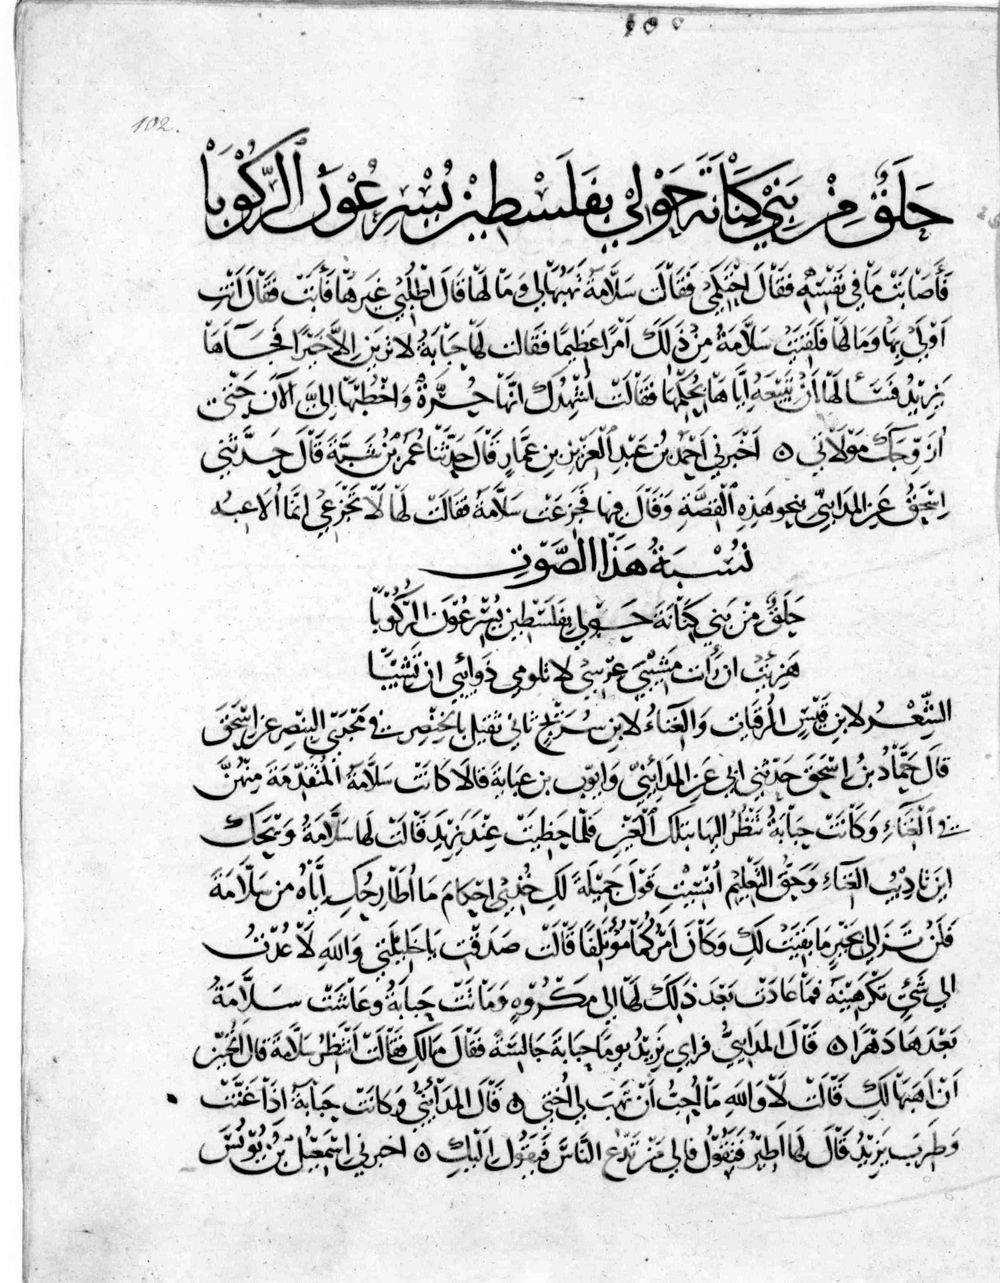 ١٠٥
102.
حَلَقٌ مِنْ بَنِيْ كِنَانَةَ حَوْلِيْ بِفَلَسْطِيْنَ يُسْرِعُوْنَ الرُّكُوْبَا
فَأَصَابَتْ مَا فِي نَفْسِهِ فَقَالَ احْتَكِمِي فَقَالَتْ سَلَّامَةُ تَهَبُهَا لِي وَمَا لَهَا قَالَ اطْلُبِي غَيْرَهَا فَأَبَتْ فَقَالَ أَنْتِ
أَوْلَى بِهَا وَمَا لَهَا فَلَقِيَتْ سَلَّامَةُ مِنْ ذَلِكَ أَمْرًا عَظِيمًا فَقَالَتْ لَهَا حَبَابَةُ لَا تَرَيْنَ إِلَّا خَيْرًا فَجَاءَهَا
يَزِيْدُ فَسَألَهَا أَنْ تَبِيْعَهُ إِيَّاهَا بِحُكْمِهَا فَقَالَتْ أُشْهِدُكَ أَنَّهَا حُرَّةٌ وَاخْطُبْهَا إِلَيَّ الْآنَ حَتَّى
أُزَوِّجَكَ مَوْلَاتِي ٥ أَخْبَرَنِي أَحْمَدُ بْنُ عَبْدِ الْعَزِيْزِ بْنِ عَمَّارٍ قَالَ حَدَّثَنَا عُمَرُ بْنُ شَبَّةَ قَالَ حَدَّثَنِي
إِسْحَقُ عَنِ الْمَدَائِنِيِّ بِنَحْوِ هَذِهِ الْقِصَّةِ وَقَالَ فِيهَا فَجَزِعَتْ سَلَّامَةُ فَقَالَتْ لَهَا لَا تَجْزَعِي إِنَّمَا أُلَاعِبُهُ
نِسْبَةُ هَذَا الصَّوْتِ
حَلَقٌ مِنْ بَنِي كِنَانَةَ حَوْلِي بِفَلَسْطِيْنَ يُسْرِعُوْنَ الرُّكُوْبَا
هَزِئَتْ أَنْ رَأَتْ مَشِيْبِي عِرْسِي لَا تَلُومِي ذَوَائِبِي أَنْ تَشِيْبَا
الشِّعْرُ لِابْنِ قَيْسِ الرُّقَيَّاتِ وَالْغِنَاءُ لِابْنِ سُرَيْجٍ ثَانِي ثَقِيلٍ بِالْخِنْصِرِ فِي مَجْرَى الْبِنْصِرِ عَنْ إِسْحَقَ
قَالَ حَمَّادُ بْنُ إِسْحَقَ حَدَّثَنِي أَبِي عَنِ الْمَدَائِنِيِّ وَأَيُّوْبَ بْنِ عَبَايَةَ قَالَا كَانَتْ سَلَّامَةُ الْمُتَقَدِّمَةَ مِنْهُنَّ
فِي الْغِنَاءِ وَكَانَتْ حَبَابَةُ تَنْظُرُ إِلَيْهَا بِتِلْكَ الْعَيْنِ فَلَمَّا حَظِيَتْ عِنْدَ يَزِيْدَ قَالَتْ لَهَا سَلَّامَةُ وَيْحَكِ
أَيْنَ تَأْدِيْبُ الْغِنَاءِ وَحَقُّ التَّعْلِيْمِ أَنَسِيْتِ قَوْلَ جَمِيْلَةَ لَكِ خُذِي إِحْكَامَ مَا أُطَارِحُكِ إِيَّاهُ مِنْ سَلَّامَةَ
فَلَنْ تَزَالِي بِخَيْرٍ مَا بَقِيَتْ لَكِ وَكَانَ أَمْرُكُمَا مُؤْتَلِفًا قَالَتْ صَدَقْتِ يَا خَلِيْلَتِي وَاللَّهِ لَا عُدْتُ
إِلَى شَيْءٍ تَكْرَهِيْنَهُ فَمَا عَادَتْ بَعْدَ ذَلِكَ لَهَا إِلَى مَكْرُوْهٍ وَمَاتَتْ حَبَابَةُ وَعَاشَتْ سَلَّامَةُ
بَعْدَهَا دَهْرًا ٥ قَالَ الْمَدَائِنِيُّ فَرَأَى يَزِيْدُ يَوْمًا حَبَابَةَ جَالِسَةً فَقَالَ مَا لَكِ فَقَالَتْ أَنْتَظِرُ سَلَّامَةَ قَالَ أَتُحِبِّيْنَ
أَنْ أَهَبَهَا لَكِ قَالَتْ لَا وَاللَّهِ مَا أُحِبُّ أَنْ تَهَبَ لِي أُخْتِي ٥ قَالَ الْمَدَائِنِيُّ وَكَانَتْ حَبَابَةُ إِذَا غَنَّتْ
وَطَرِبَ يَزِيْدُ قَالَ لَهَا أَطِيْرُ فَتَقُوْلُ فَإِلَى مَنْ تَدَعُ النَّاسَ فَيَقُوْلُ إِلَيْكِ ٥ أَخْبَرَنِي إِسْمَعِيْلُ بْنُ يُوْنُسَ